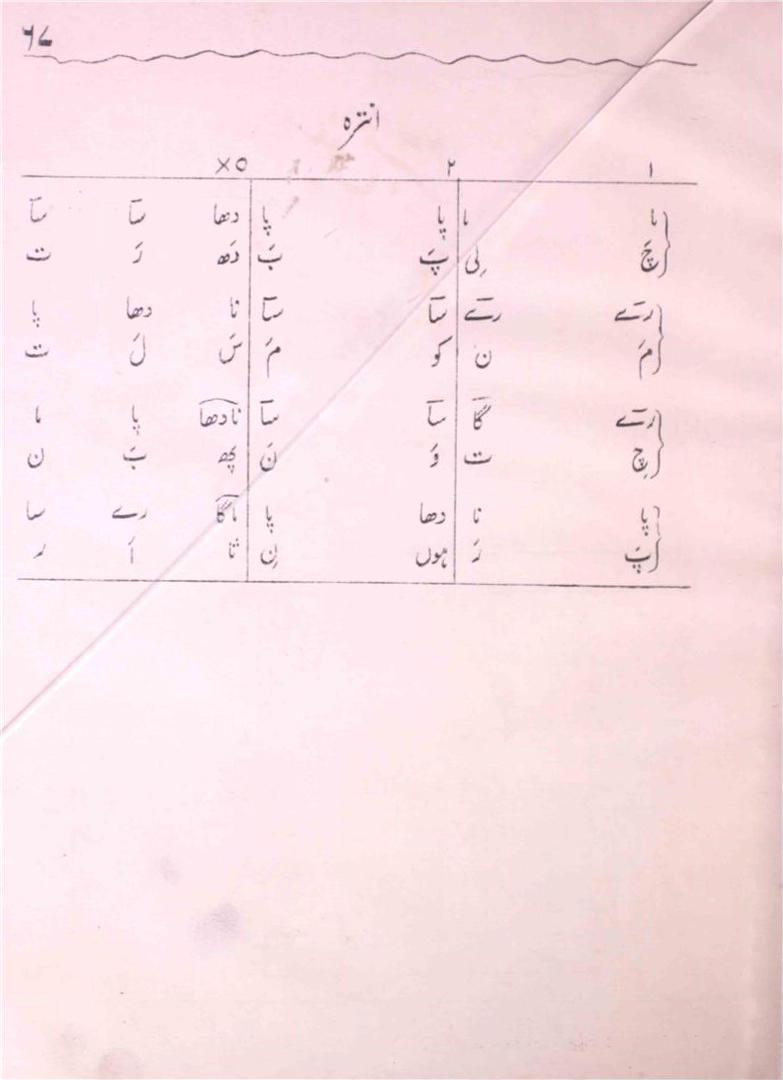 ۶۷
انترہ
۱ ۲ ×۵
ما ما پا پا دھا سآ سآ
چَ لِی پَ بَ دَھ رَ ت
رےٓ رےٓ سآ سآ نا دھا پا
مَ ن کو مَ سَ لَ ت
رےٓ گآ سآ سآ نادھا پا ما
چِ ت وَ نَ پھ بَ ن
پا نا دھا پا ماگا رے سا
پَ رَ ہوں نِ ثا اَ ر